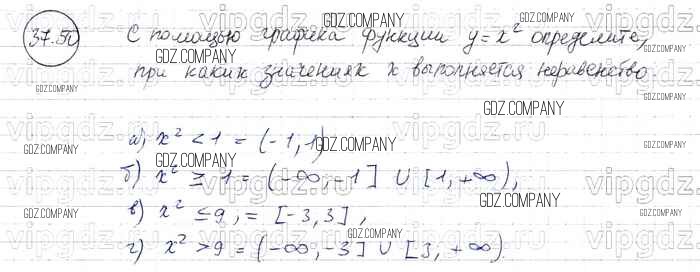 37.50 С помощью графика функции y = x² определите,
при каких значениях x выполняется неравенство.
а) x² < 1 = (-1, 1)
б) x² ≥ 1 = (-∞, -1] ∪ [1, +∞),
в) x² ≤ 9, = [-3, 3],
г) x² > 9 = (-∞, -3] ∪ [3, +∞).
GDZ.COMPANY
vipgdz.ru